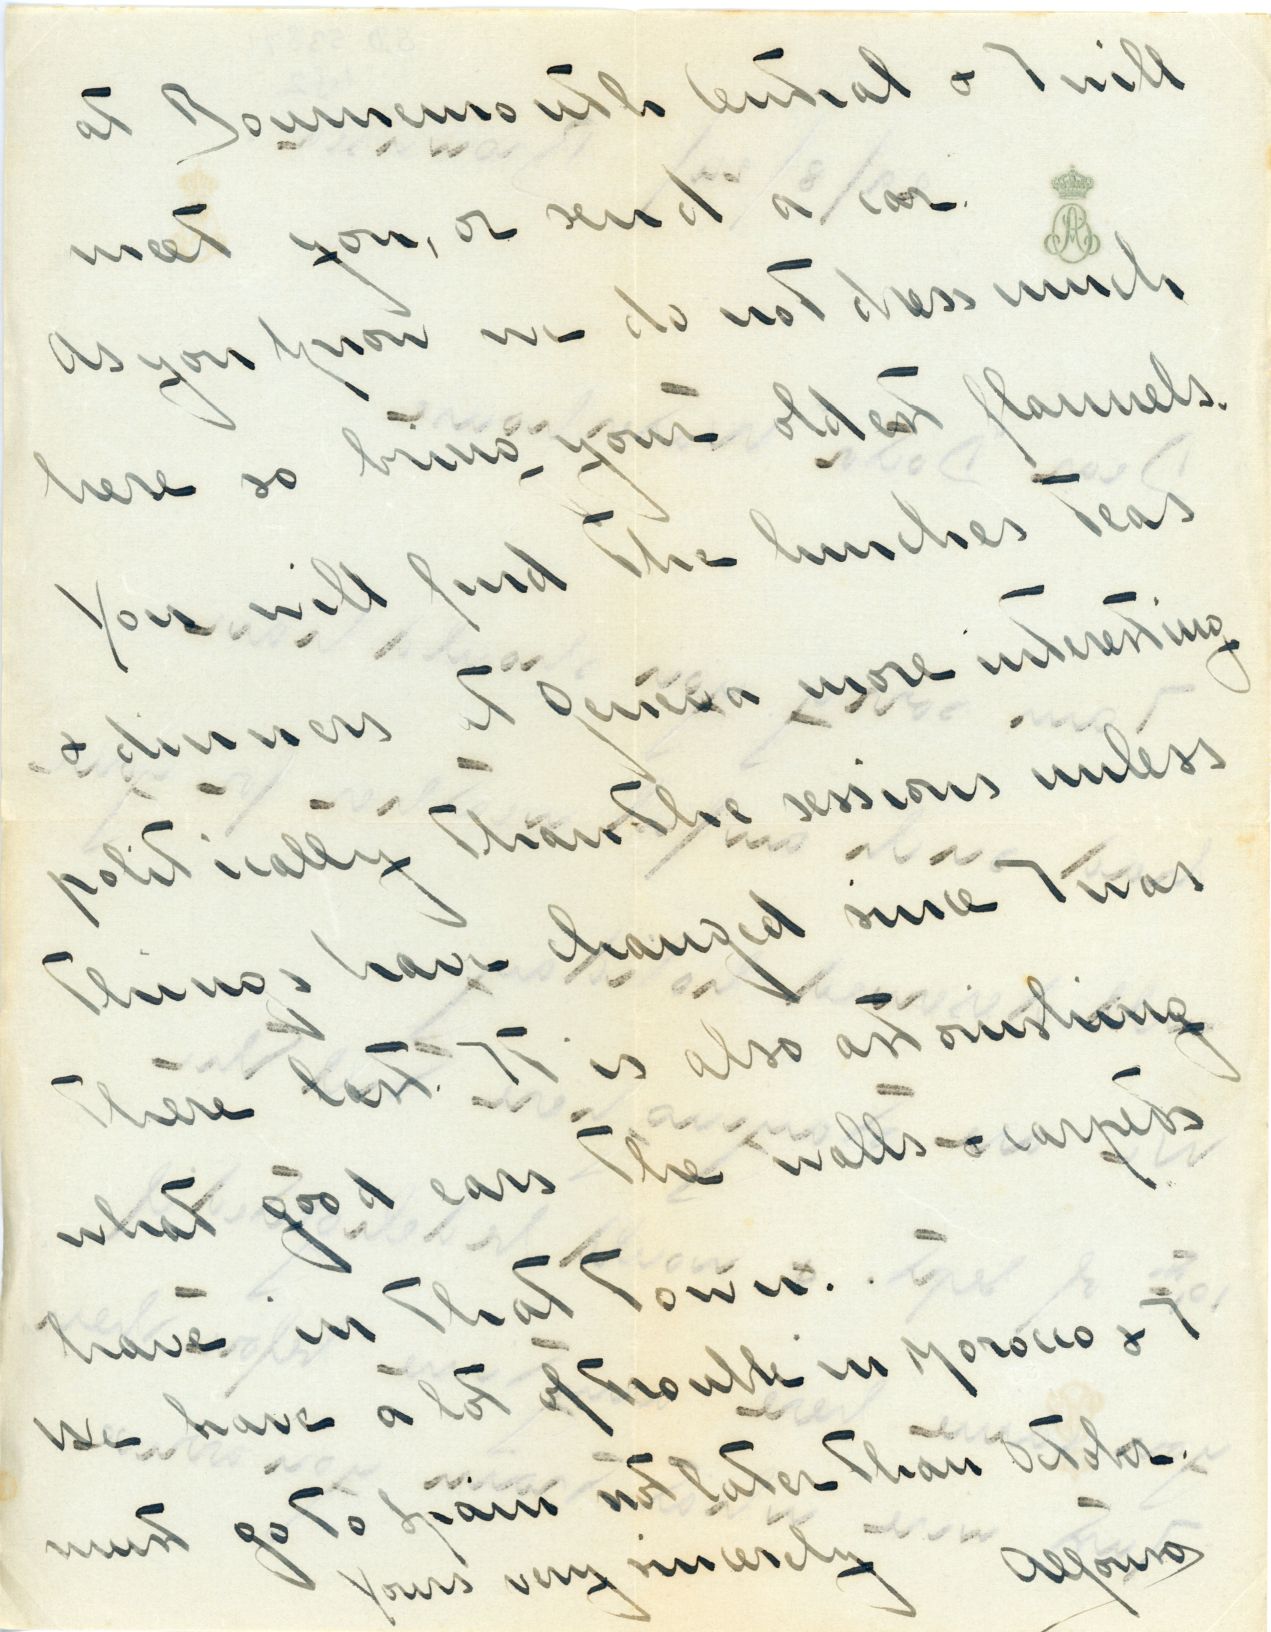 at Bournemouth Central & I will
meet you, or send a car.
As you know we do not dress much
here so bring your oldest flannels.
You will find the lunches teas
& dinners at Geneva more interesting
politically than the sessions unless
things have changed since I was
there last. It is also astonishing
what good ears the walls & carpets
have in that town..
We have a lot of trouble in Morocco & I
must go to Spain not later than October.
Yours very sincerely Alfonso